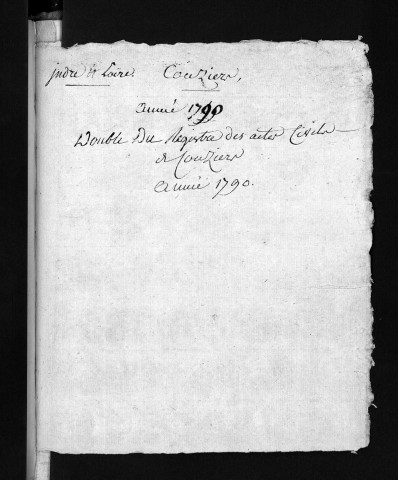 Indre & Loire. Couziers.
année 1790
Double Du Registre des actes Civils
de Couziers
année 1790.